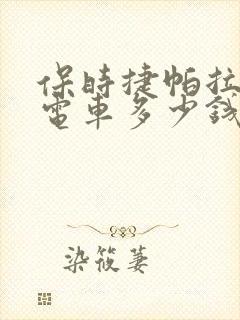 保時捷帕拉
電車多少錢
染筱萋